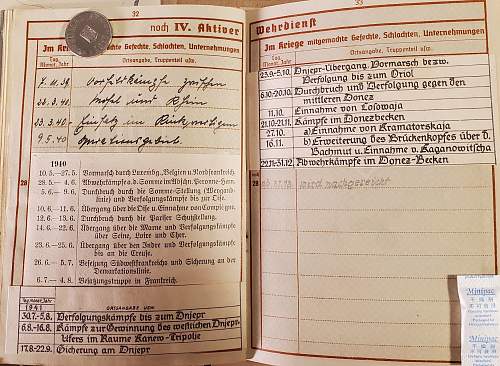 32
noch IV. Aktiver
Im Kriege mitgemachte Gefechte, Schlachten, Unternehmungen
Tag, Monat, Jahr
Ortsangabe, Truppenteil usw.
7. 11. 39
23. 3. 40. Mosel und Rhein
23. 3. 40. Einsatz im
9. 5. 40 Operationsgebiet.
28
1940
10. 5.—27. 5. Vormarsch durch Luxembg., Belgien u. Nordfrankreich.
28. 5.— 4. 6. Abwehrkämpfe a. d. Somme im Abschn. Peronne-Ham.
5. 6.— 9. 6. Durchbruch durch die Somme-Stellung (Weygand-
linie) und Verfolgungskämpfe bis zur Oise.
10. 6.—11. 6. Übergang über die Oise u. Einnahme von Compiegne.
12. 6.—13. 6. Durchbruch durch die Pariser Schutzstellung.
14. 6.—22. 6. Übergang über die Marne und Verfolgungskämpfe
über Seine, Loire und Cher.
23. 6.—25. 6. Übergang über den Indre und Verfolgungskämpfe
bis an die Creuse.
26. 6.— 5. 7. Besetzung Südwestfrankreichs und Sicherung an der
Demarkationslinie.
6. 7.— 4. 8. Besatzungstruppe in Frankreich.
Tag, Monat, Jahr
1941
ORTSANGABE USW.
30.7.-5.8. Verfolgungskämpfe bis zum Dnjepr
6.8.-16.8. Kämpfe zur Gewinnung des westlichen Dnjepr-
Ufers im Raume Kanew-Tripolje
17.8-22.9. Sicherung am Dnjepr
33
Wehrdienst
Im Kriege mitgemachte Gefechte, Schlachten, Unternehmungen
Tag, Monat, Jahr
Ortsangabe, Truppenteil usw.
23.9.-5.10. Dnjepr-Übergang Vormarsch bezw.
Verfolgung bis zum Oriol
6.10-20.10. Durchbruch und Verfolgung gegen den
mittleren Donez
11.10. Einnahme von Losowaja
21.10-21.11. Kämpfe im Donezbecken
27.10. a) Einnahme von Kramatorskaja
16.11. b) Erweiterung des Brückenkopfes über d.
Bachmut u. Einnahme v. Kaganowitscha
22.11-31.12. Abwehrkämpfe im Donez-Becken
28
wird nachgereicht
Minipax
Minipax